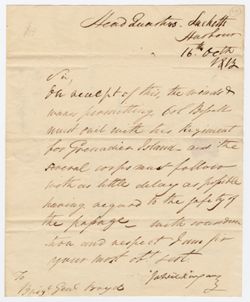 Head Quarters Sacketts
Harbour
16th Octr
1813
Sir,
On receipt of this, the winds &
waves permitting Col Bissell
must sail with his Regiment
for Grenadier Island - and the
several corps must follow
with as little delay as possible
having regard to the safety of
the passage - with consideration
tion and respect I am for
your most ob. Svt.
To
Brigr Genl Boyd